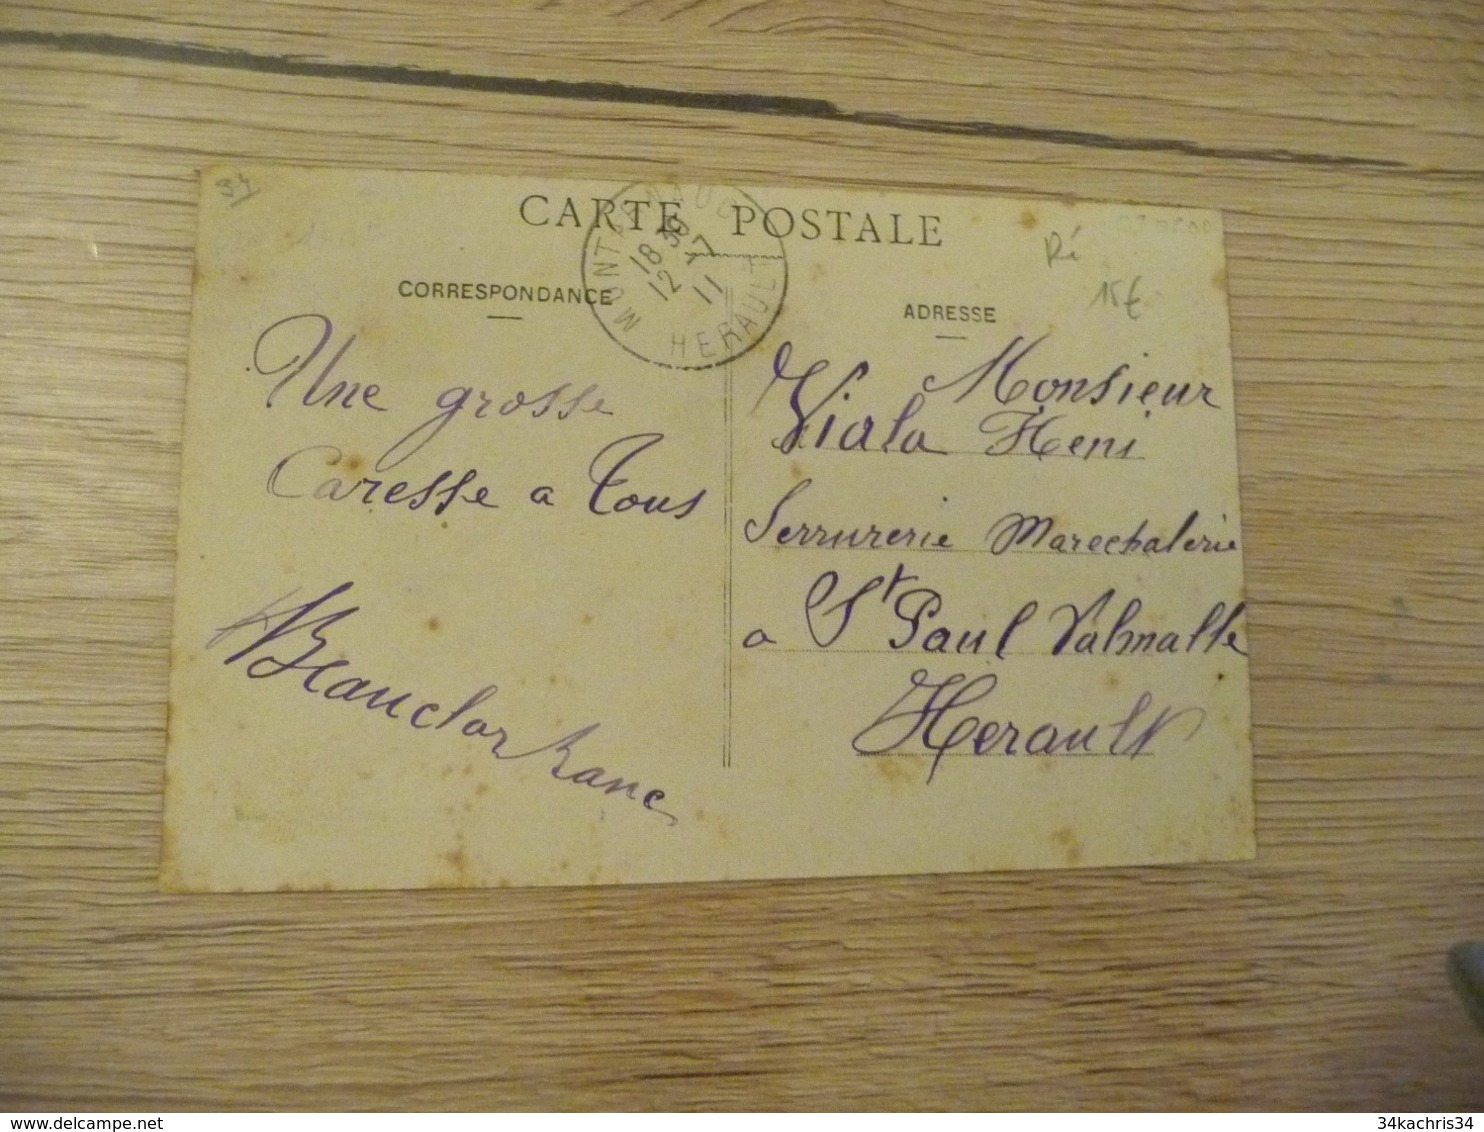 34
CARTE POSTALE
MONTARNAUD
18 30
12 7
11
HERAULT
Ré
15€
CORRESPONDANCE
ADRESSE
Une grosse
Caresse a Tous
Monsieur
Viala Heni
Serrurerie Marechalerie
a St Paul Valmalle
Herault
delcampe.net
34kachris34